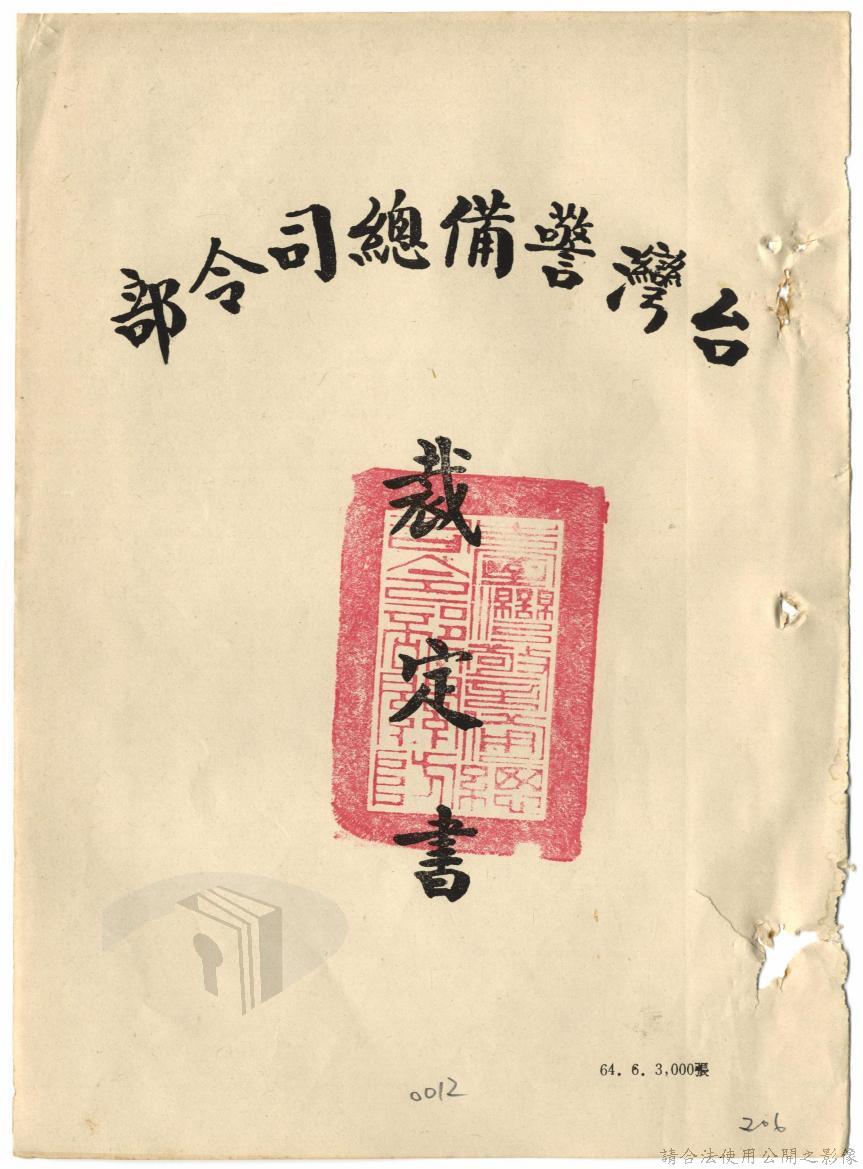 台灣警備總司令部
裁定書
64. 6. 3,000張
0012
206
請合法使用公開之影像